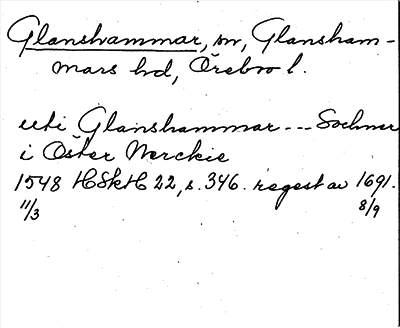 Glanshammar, sn, Glansham-
mars hd, Örebro l.
uti Glanshammar --- Sochner
i Öster Nerckie
1548 HSkH 22, s. 346. regest av 1691.
11/3 8/9